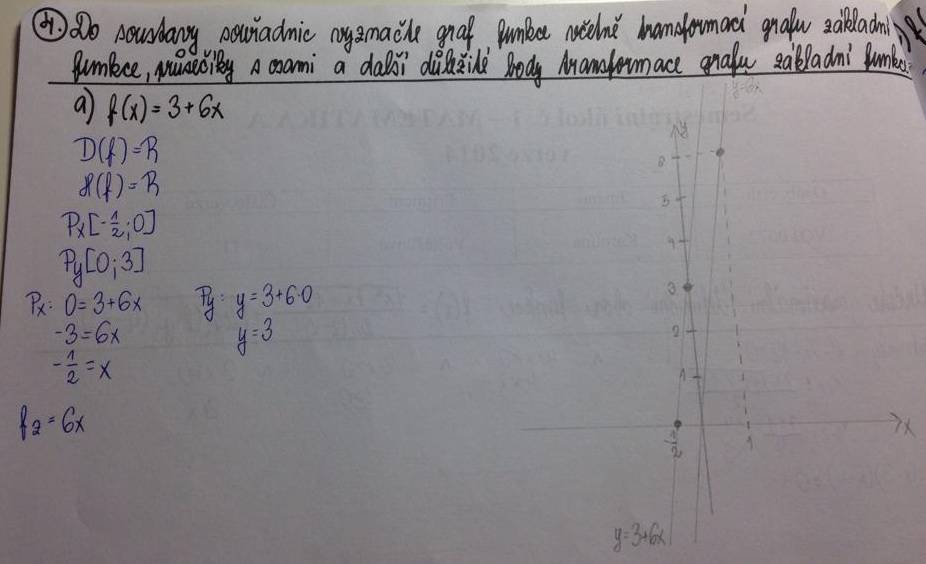 4. Do soustavy souřadnic vyznačte graf funkce včetně transformací grafu základní
funkce, průsečíky s osami a další důležité body transformace grafu základní funkce.
a) f(x) = 3 + 6x
D(f) = R
H(f) = R
Px[-1/2; 0]
Py[0; 3]
Px: 0 = 3 + 6x
-3 = 6x
-1/2 = x
Py: y = 3 + 6·0
y = 3
f2 = 6x
y=6x
y
6
5
4
3
2
1
-1/2
1
x
y=3+6x